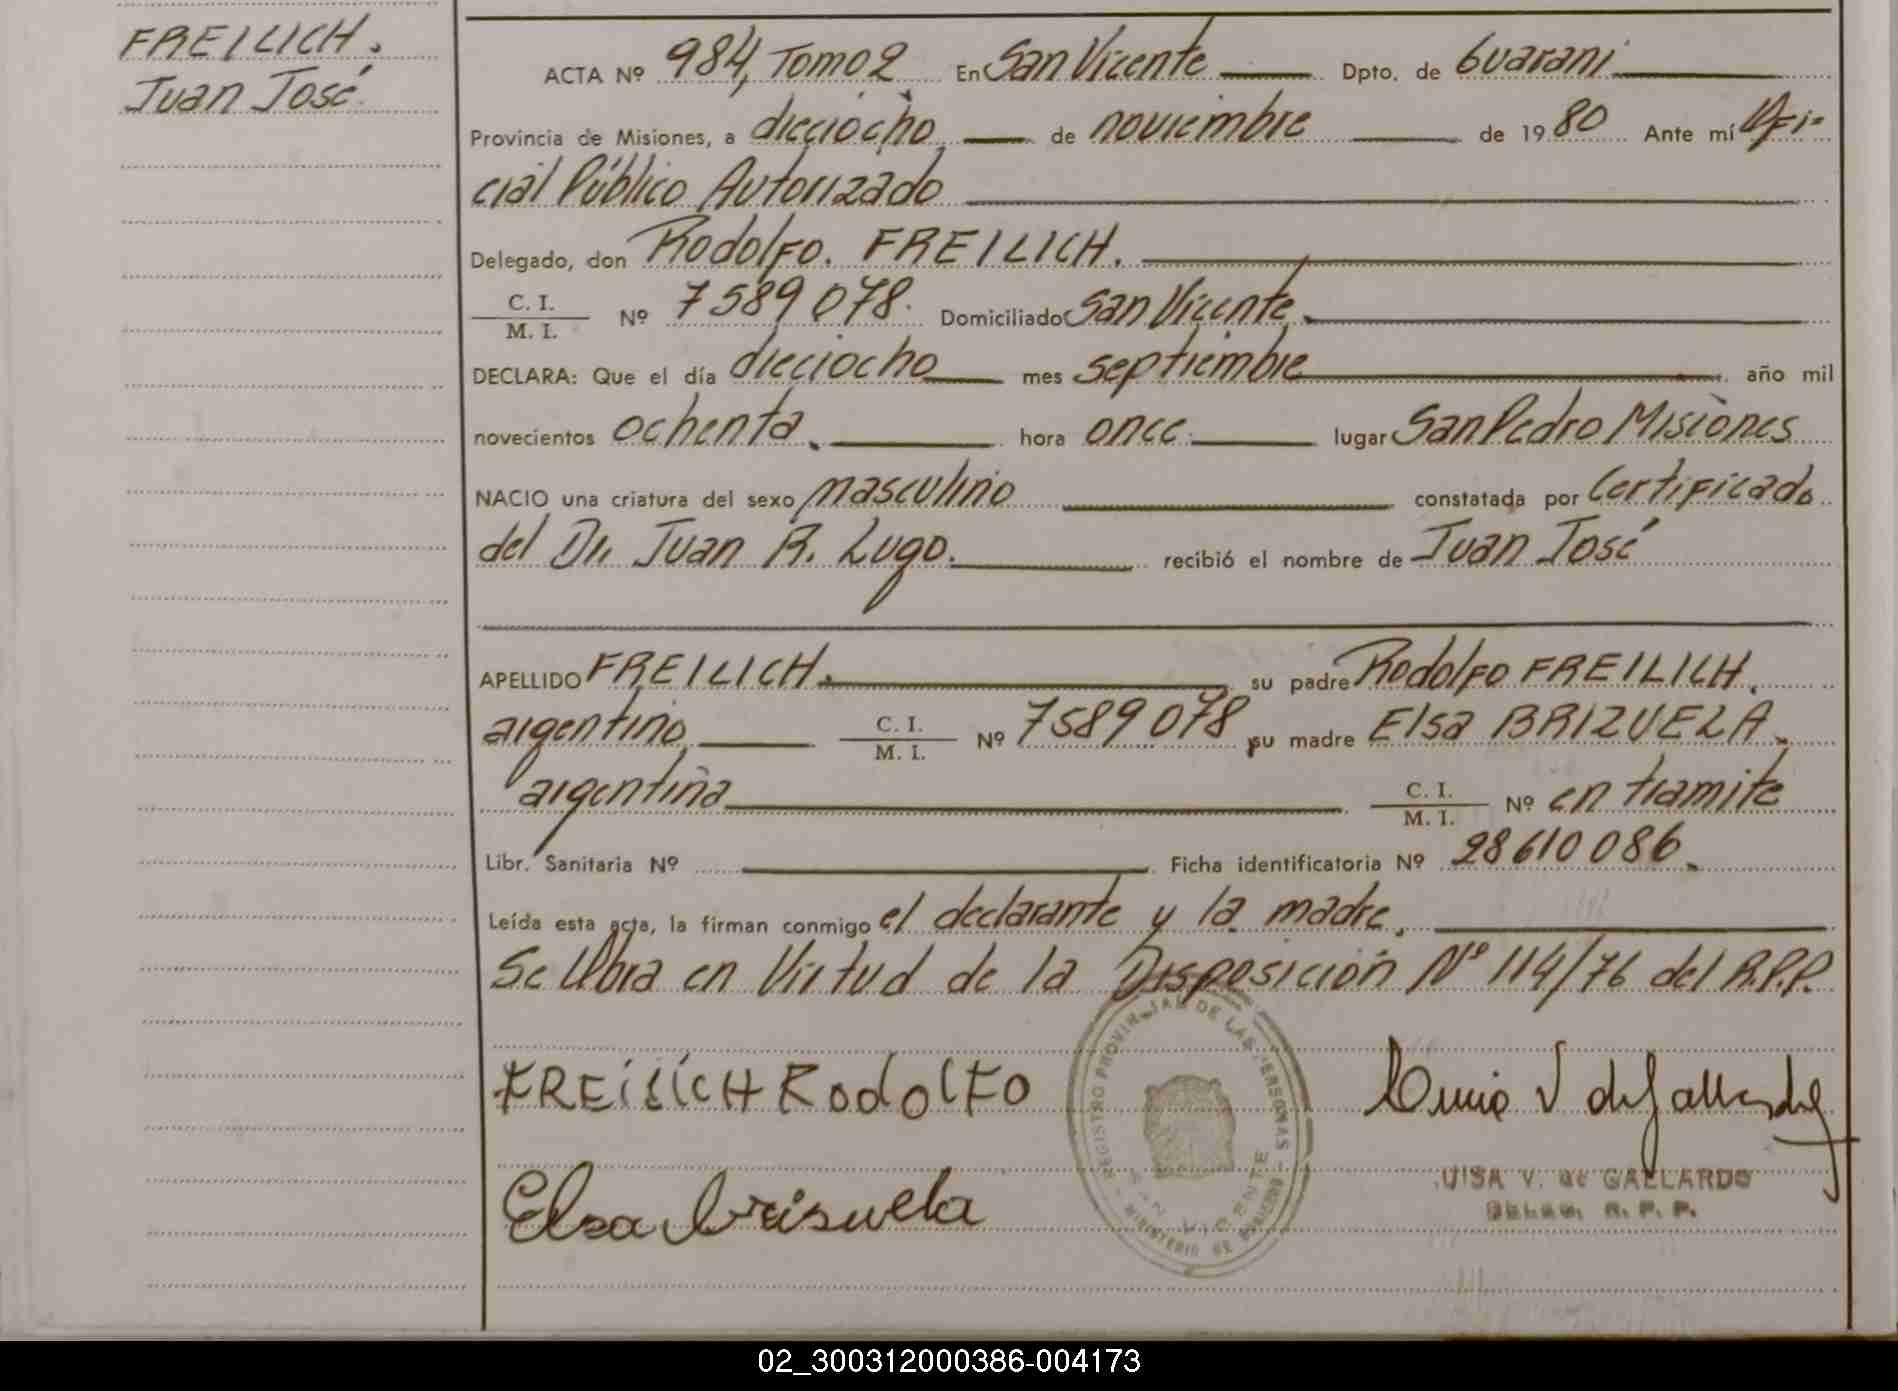 FREILICH.
Juan José
ACTA Nº 984, Tomo 2 En San Vicente Dpto. de Guarani
Provincia de Misiones, a dieciocho de noviembre de 1980 Ante mí Ofi-
cial Público Autorizado
Delegado, don Rodolfo. FREILICH.
C. I.
M. I. Nº 7589078. Domiciliado San Vicente.
DECLARA: Que el día dieciocho mes septiembre año mil
novecientos ochenta. hora once. lugar San Pedro Misiones
NACIO una criatura del sexo masculino constatada por Certificado
del Dr. Juan R. Lugo. recibió el nombre de Juan José
APELLIDO FREILICH. su padre Rodolfo FREILICH.
argentino, C. I.
M. I. Nº 7589078, su madre Elsa BRIZUELA.
argentina C. I.
M. I. Nº en tramite
Libr. Sanitaria Nº Ficha identificatoria Nº 28610086.
Leída esta acta, la firman conmigo el declarante y la madre.
Se labra en Virtud de la Disposición Nº 114/76 del R.P.P.
FREiLiCH RodoLFO
Elsa brisuela
REGISTRO PROVINCIAL DE LAS PERSONAS
SAN VICENTE
MINISTERIO DE GOBIERNO
V de Gallardo
UISA V. de GALLARDO
DELEG. R. P. P.
02_300312000386-004173